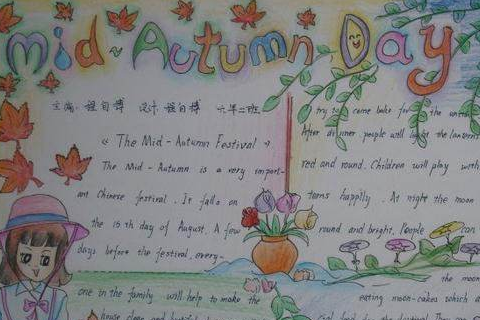 mid-Autumn Day
主编：程自博 设计：程自博 六年二班
« The Mid-Autumn Festival »
The Mid-Autumn is a very import-
ant Chinese festival. It falls on
the 15th day of August. A few
days before the festival, every-
one in the family will help to make the
house clean and
try to come back for the
After dinner people will light the lantern
red and round. Children will play with
terns happily. At night the moon
round and bright. People can
the moon
eating moon-cakes which a